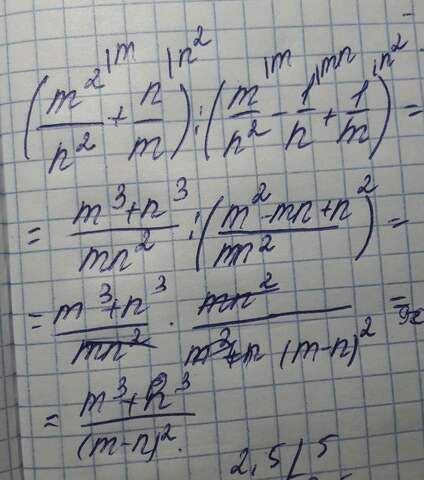 (m²/n² |m + n/m |n²) : (m/n² |m - 1/n |mn + 1/m |n²) =
= (m³+n³)/(mn²) : ((m²-mn+n²)/(mn²)) =
= (m³+n³)/(mn²) · (mn²)/((m-n)²) =
= (m³+n³)/((m-n)²).
2,5 | 5